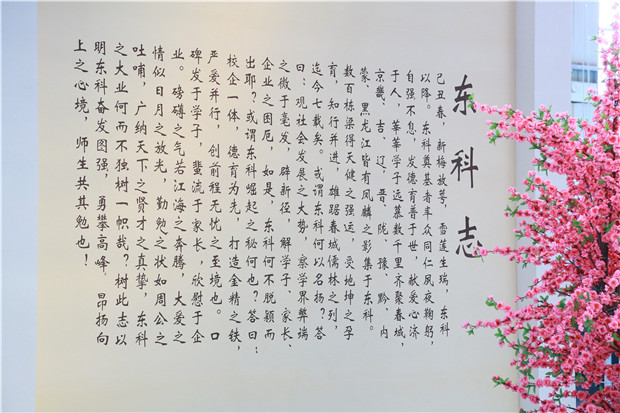 东科志
己丑春，新梅放萼，雪莲生瑞，东科
以降。东科奠基者率众同仁夙夜鞠躬，
自强不息，发德育善于世，献爱心济
于人，莘莘学子远慕数千里齐聚春城，
京畿、吉、辽、晋、皖、豫、黔、内
蒙、黑龙江皆有凤麟之影集于东科。
数百栋梁得天健之强运，受地坤之孕
育，知行并进，雄踞春城儒林之列，
迄今七载矣。或谓东科何以名扬？答
曰：观社会发展之大势，察学界弊端
之微于毫发，辟新径，解学子、家长、
企业之困厄，如是，东科何不脱颖而
出耶？或谓东科崛起之秘何也？答曰：
校企一体，德育为先，打造金精之铁，
严爱并行，创前程无忧之至境也。口
碑发于学子，蜚流于家长，欣慰于企
业。磅礴之气若江海之奔腾，大爱之
情似日月之放光，勤勉之状如周公之
吐哺，广纳天下之贤才之真挚，东科
之大业何而不独树一帜哉？树此志以
明东科奋发图强，勇攀高峰，昂扬向
上之心境，师生共其勉也！